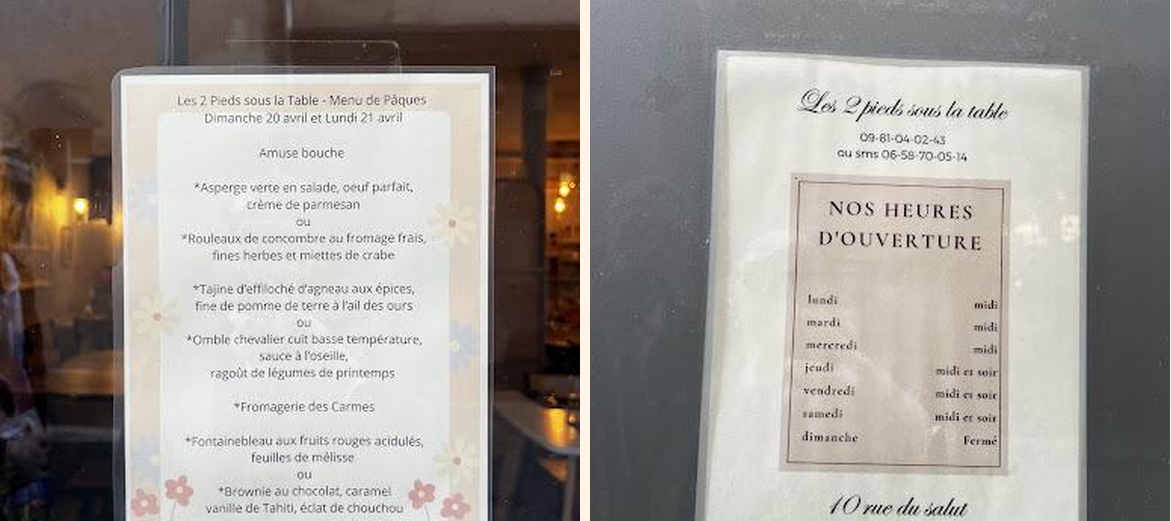 Les 2 Pieds sous la Table - Menu de Pâques
Dimanche 20 avril et Lundi 21 avril
Amuse bouche
*Asperge verte en salade, oeuf parfait,
crème de parmesan
ou
*Rouleaux de concombre au fromage frais,
fines herbes et miettes de crabe
*Tajine d'effiloché d'agneau aux épices,
fine de pomme de terre à l'ail des ours
ou
*Omble chevalier cuit basse température,
sauce à l'oseille,
ragoût de légumes de printemps
*Fromagerie des Carmes
*Fontainebleau aux fruits rouges acidulés,
feuilles de mélisse
ou
*Brownie au chocolat, caramel
vanille de Tahiti, éclat de chouchou
Les 2 pieds sous la table
09-81-04-02-43
ou sms 06-58-70-05-14
NOS HEURES
D'OUVERTURE
lundi midi
mardi midi
mercredi midi
jeudi midi et soir
vendredi midi et soir
samedi midi et soir
dimanche Fermé
10 rue du salut